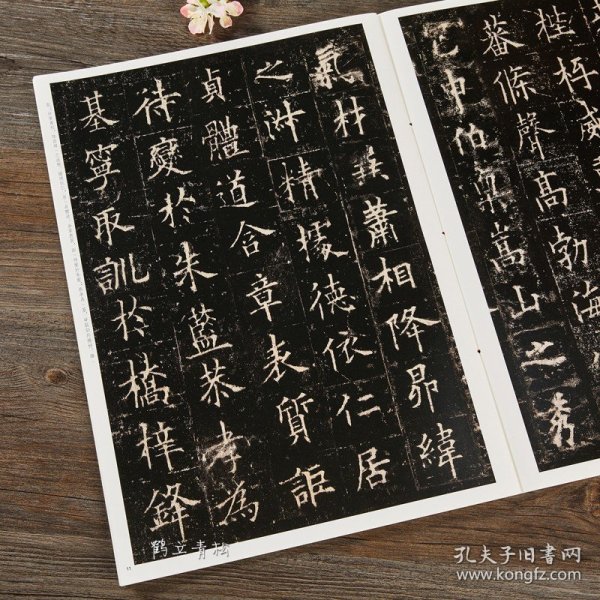 蕃條聲高勃海
包申伯稟嵩山之秀
氣材兼蕭相降昴緯
之淑精據德依仁居
貞體道含章表質詎
待變於朱藍恭孝為
基寧取訓於橋梓鋒
11
鹤立青松
孔夫子旧书网
www.kongfz.com